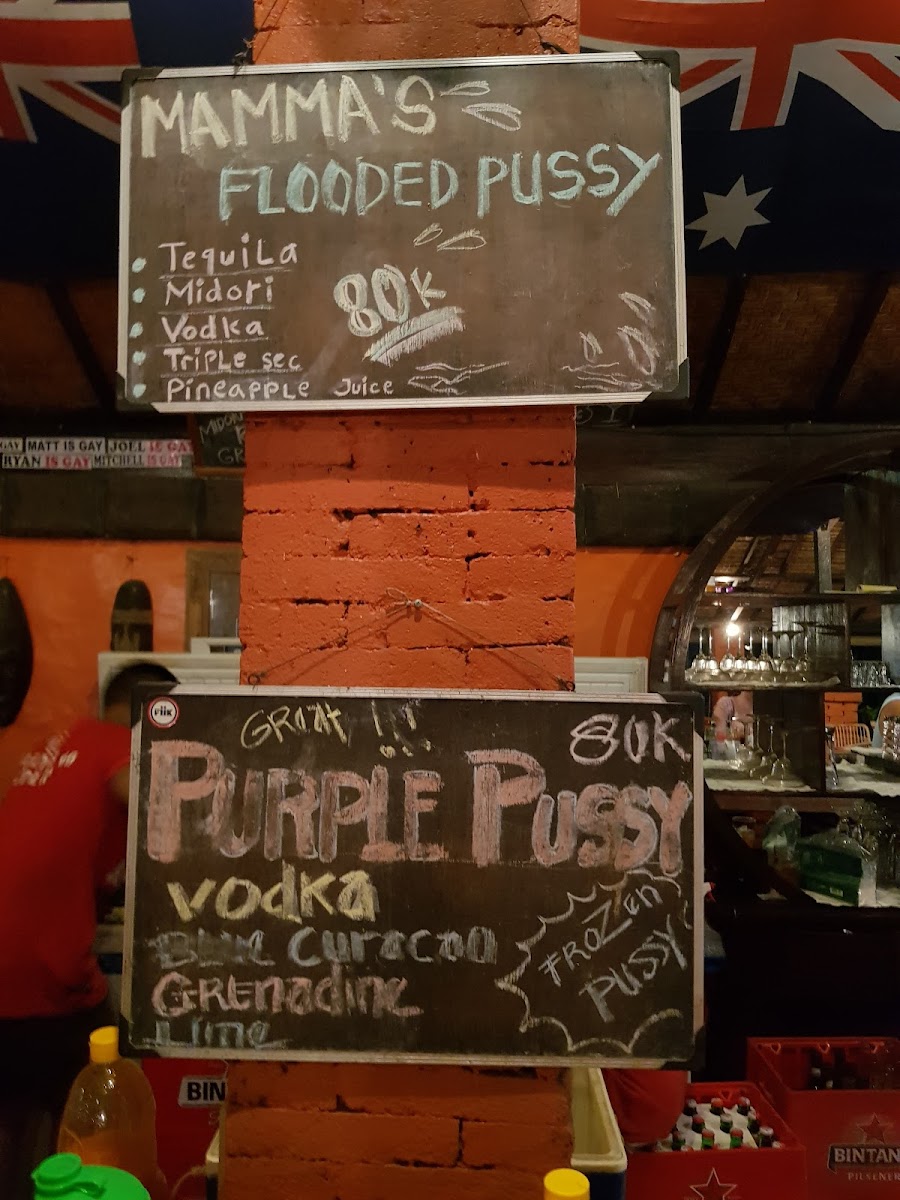 MAMMA'S
FLOODED PUSSY
Tequila
Midori
Vodka
Triple sec
Pineapple Juice
80K
GAY MATT IS GAY JOEL IS GA
RYAN IS GAY MITCHELL IS GAY
MIDORI
GR
FiiK
GREAT !!!
80K
PURPLE PUSSY
Vodka
BLUE Curacao
GRENadine
Lime
FROZEN
PUSSY
BIN
BINTAN
PILSENER